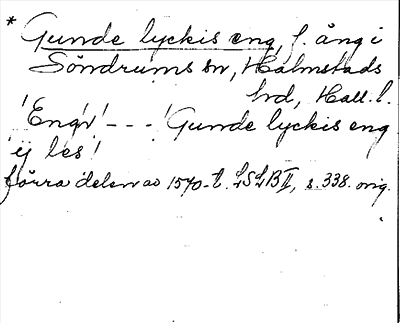 * Gunde lyckis eng, f. äng i
Söndrums sn, Halmstads
hd, Hall. l.
'Engr' - - - 'Gunde lyckis eng
ej les'
förra delen av 1570-t. LSLB II, s. 338. orig.